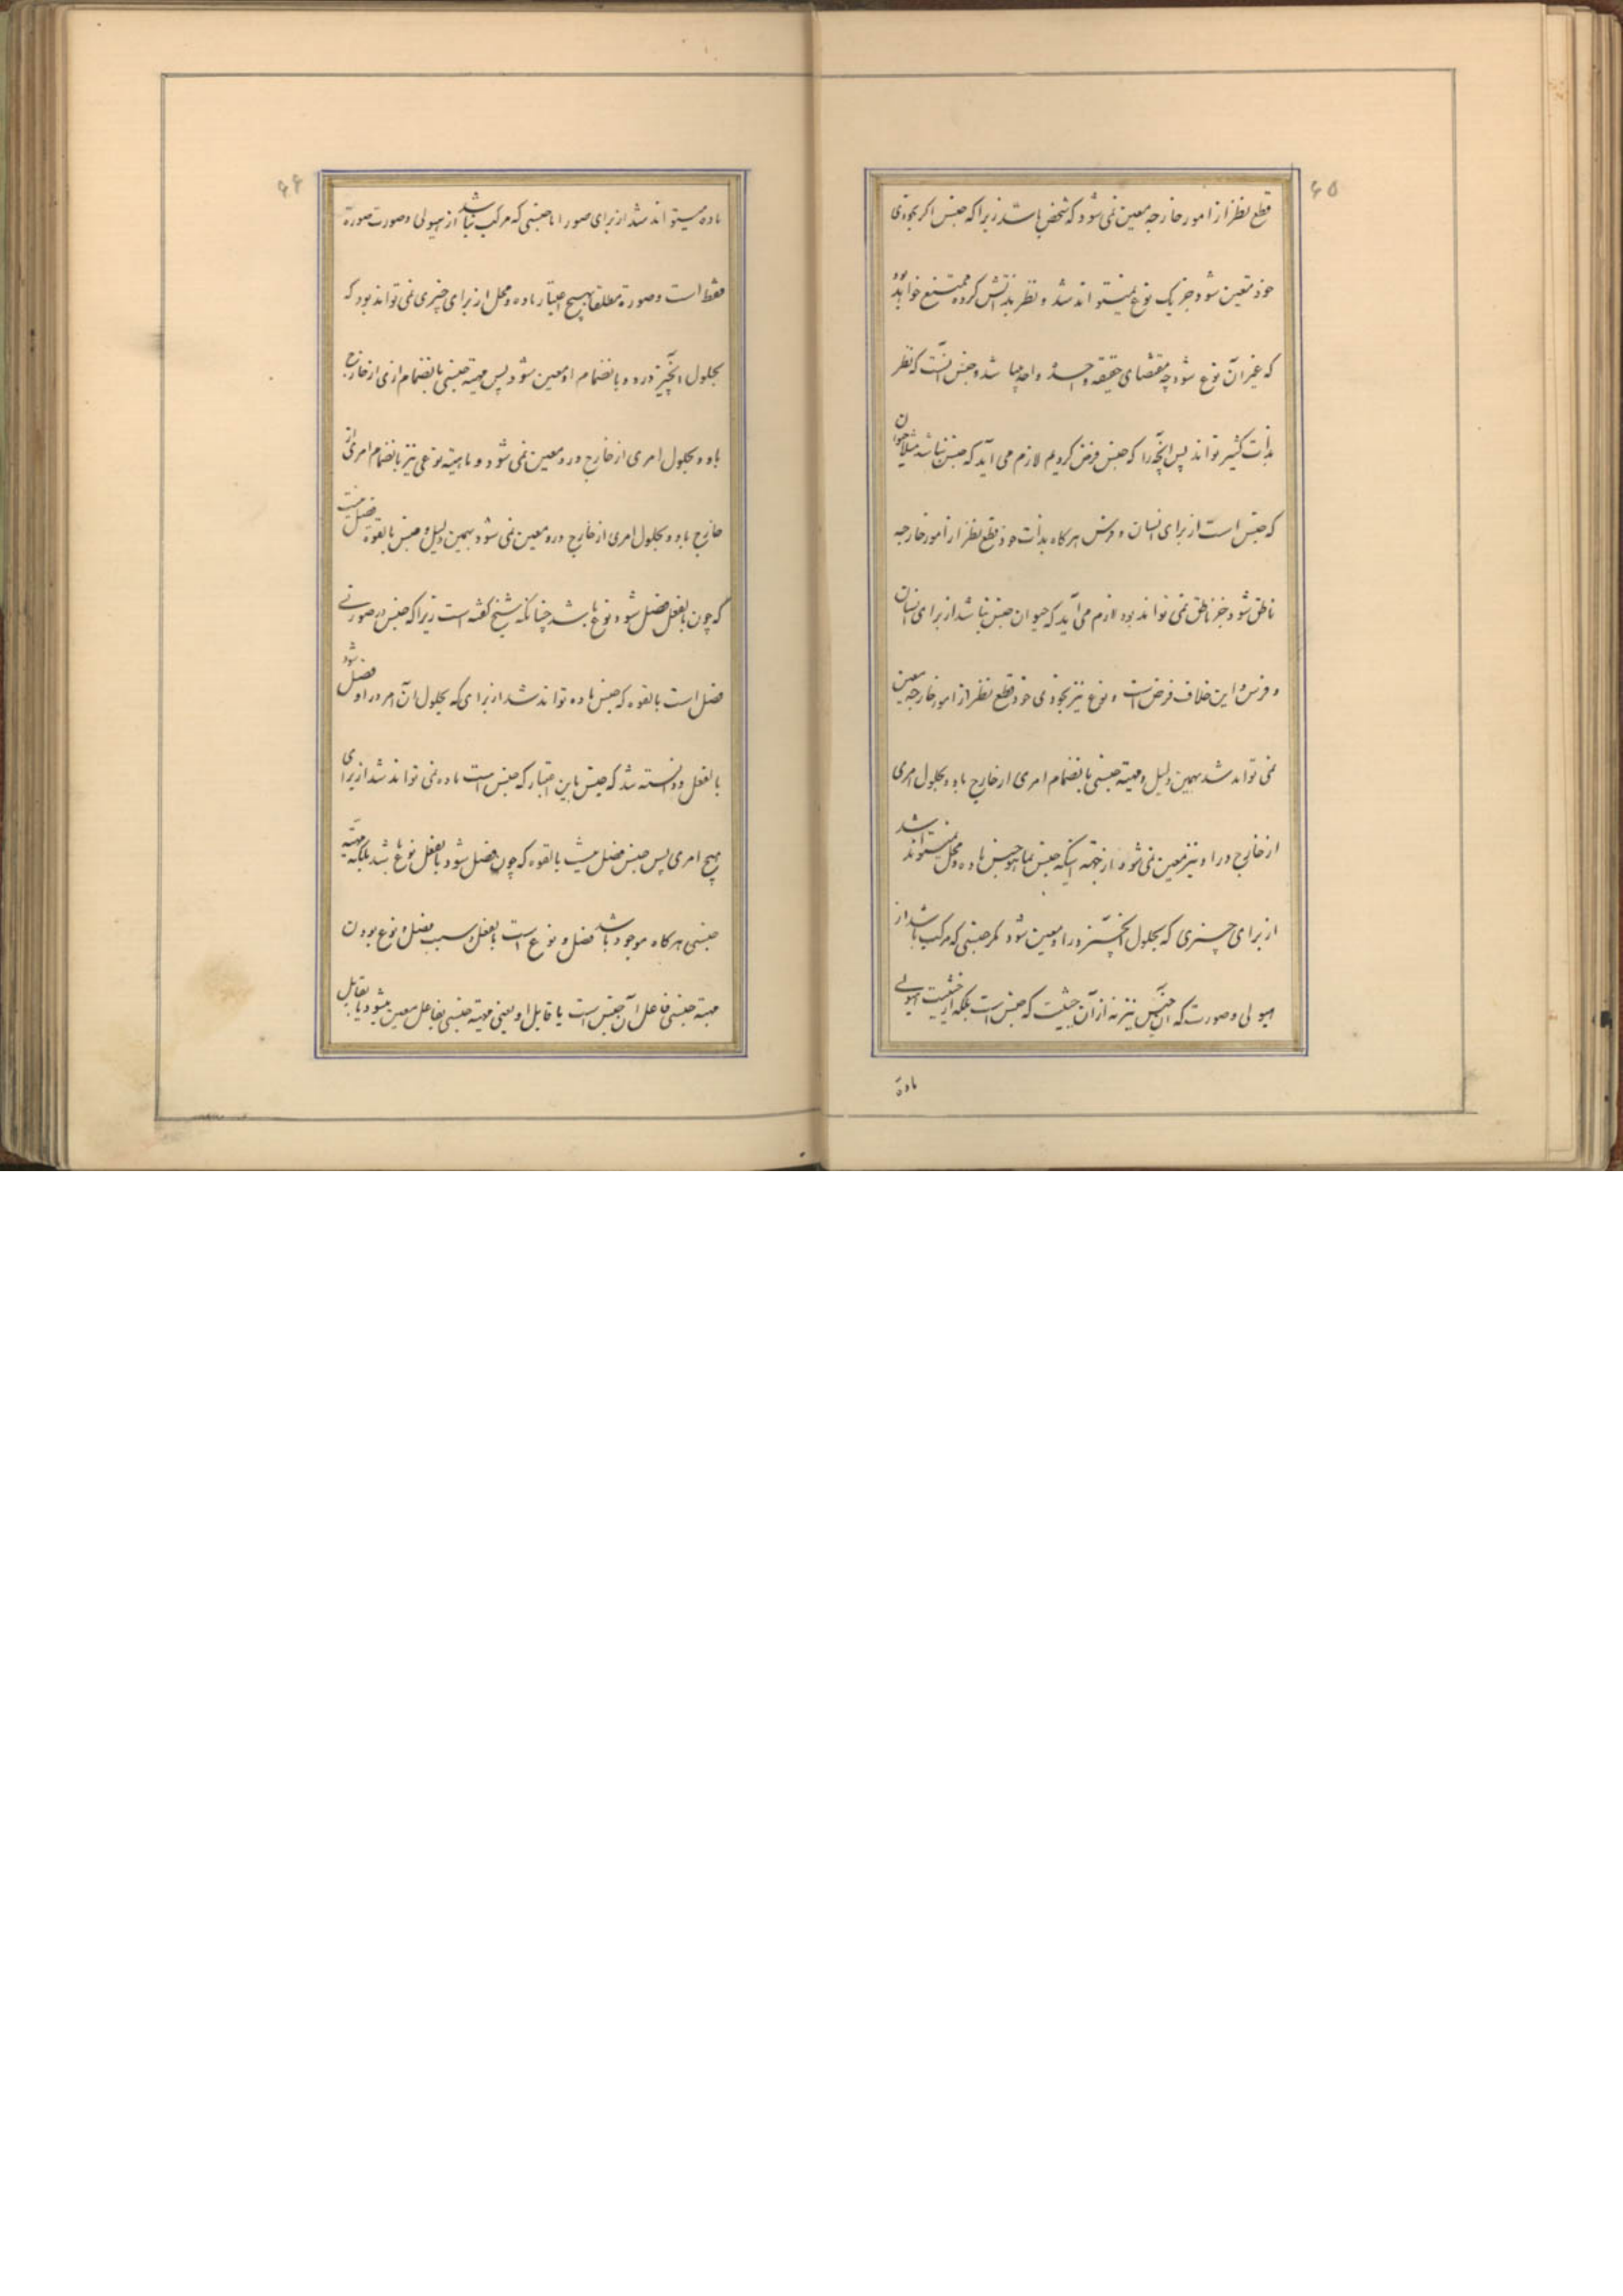 ۶۵
قطع نظر از امور خارجه معین نمی شود که شخص باشد زیرا که جنس اگر بخودی
خود متعین شود جز یک نوع نمیتواند شد و نظر بذاتش کرده ممتنع خواهد بود
که غیر آن نوع شود چه مقتضای حقیقه واحده واحد میباشد و جنس آنست که نظر
بذات کثیر تواند پس آنچه را که جنس فرض کردیم لازم می آید که جنس نباشد مثلا حیوان
که جنس است از برای انسان و فرس هرکاه بذات خود قطع نظر از امور خارجه
ناطق شود جز ناطق نمی تواند بود لازم می آید که حیوان جنس نباشد از برای انسان
و فرس و این خلاف فرض است و نوع نیز بخودی خود قطع نظر از امور خارجه معین
نمی تواند شد بهمین دلیل و مهیته جنسی بانضمام امری از خارج باو و بحلول امری
از خارج در او نیز معین نمی شود از جهته اینکه جنس بما هو جنس ماده و محل نمیتواند شد
از برای چیزی که بحلول آنچیز در او معین شود مکر جنسی که مرکب باشد از
هیولی و صورت که آن جنس نیز نه از آن حیثیت که جنس است بلکه از حیثیت هیولی
ماده
۶۶
ماده میتواند شد از برای صور اما جنسی که مرکب نباشد از هیولی و صورت صورة
فقط است و صورة مطلقا بهیچ اعتبار ماده و محل از برای چیزی نمی تواند بود که
بحلول آنچیز درو و بانضمام او معین شود پس مهیته جنسی بانضمام امری از خارج
باو و بحلول امری از خارج درو معین نمی شود و ماهیته نوعی نیز بانضمام امری از
خارج باو و بحلول امری از خارج درو معین نمی شود بهمین دلیل و جنس بالقوه فصل نیست
که چون بالفعل فصل شود نوع باشد چنانکه شیخ گفته است زیرا که جنس در صورتی
فصل است بالقوه که جنس ماده تواند شد از برای که بحلول آن امر در او فصل شود
بالفعل و دانسته شد که جنس باین اعتبار که جنس است ماده نمی تواند شد از برای
هیچ امری پس جنس فصل نیست بالقوه که چون فصل شود بالفعل نوع باشد بلکه مهیته
جنسی هرکاه موجود باشد فصل و نوع است بالفعل و سبب فصل و نوع بودن
مهیته جنسی فاعل آن جنس است یا قابل او یعنی مهیته جنسی بفاعل معین میشود یا بقابل